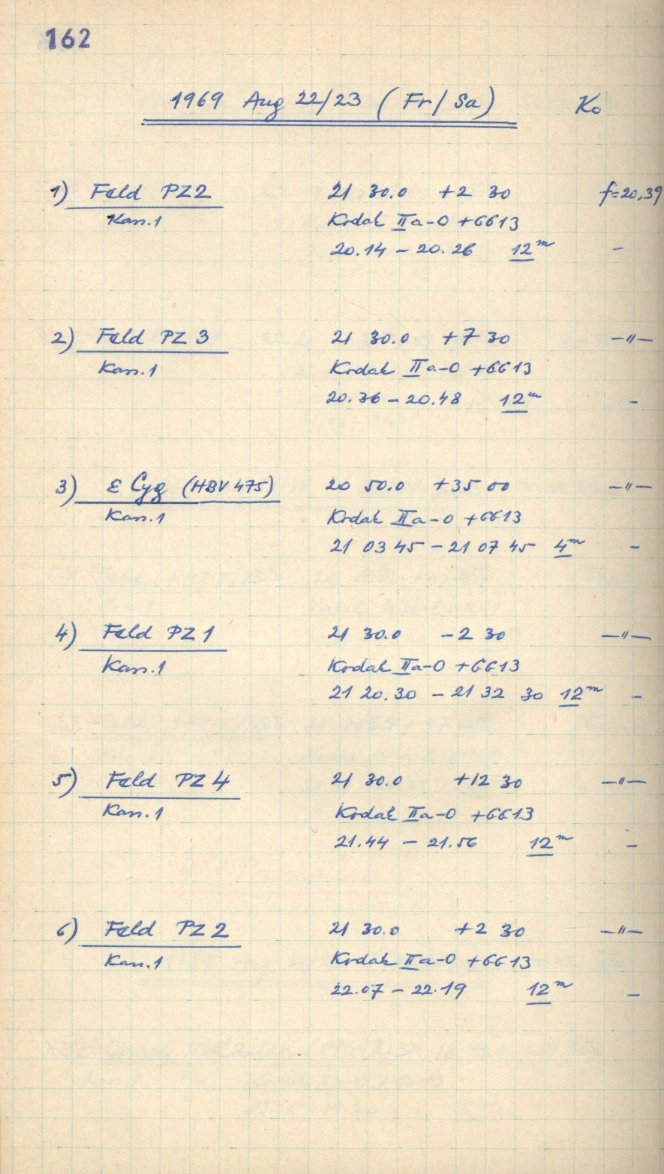 162
1969 Aug 22/23 (Fr/Sa) Ko
1) Feld PZ2 21 30.0 +2 30 f=20,39
Kass.1 Kodak IIa-O +6613
20.14 – 20.26 12m –
2) Feld PZ 3 21 30.0 +7 30 –"–
Kass.1 Kodak IIa-O +6613
20.36 – 20.48 12m –
3) ε Cyg (HBV 475) 20 50.0 +35 00 –"–
Kass.1 Kodak IIa-O +6613
21 03 45 – 21 07 45 4m –
4) Feld PZ 1 21 30.0 -2 30 –"–
Kass.1 Kodak IIa-O +6613
21 20.30 – 21 32 30 12m –
5) Feld PZ 4 21 30.0 +12 30 –"–
Kass.1 Kodak IIa-O +6613
21.44 – 21.56 12m –
6) Feld PZ 2 21 30.0 +2 30 –"–
Kass.1 Kodak IIa-O +6613
22.07 – 22.19 12m –